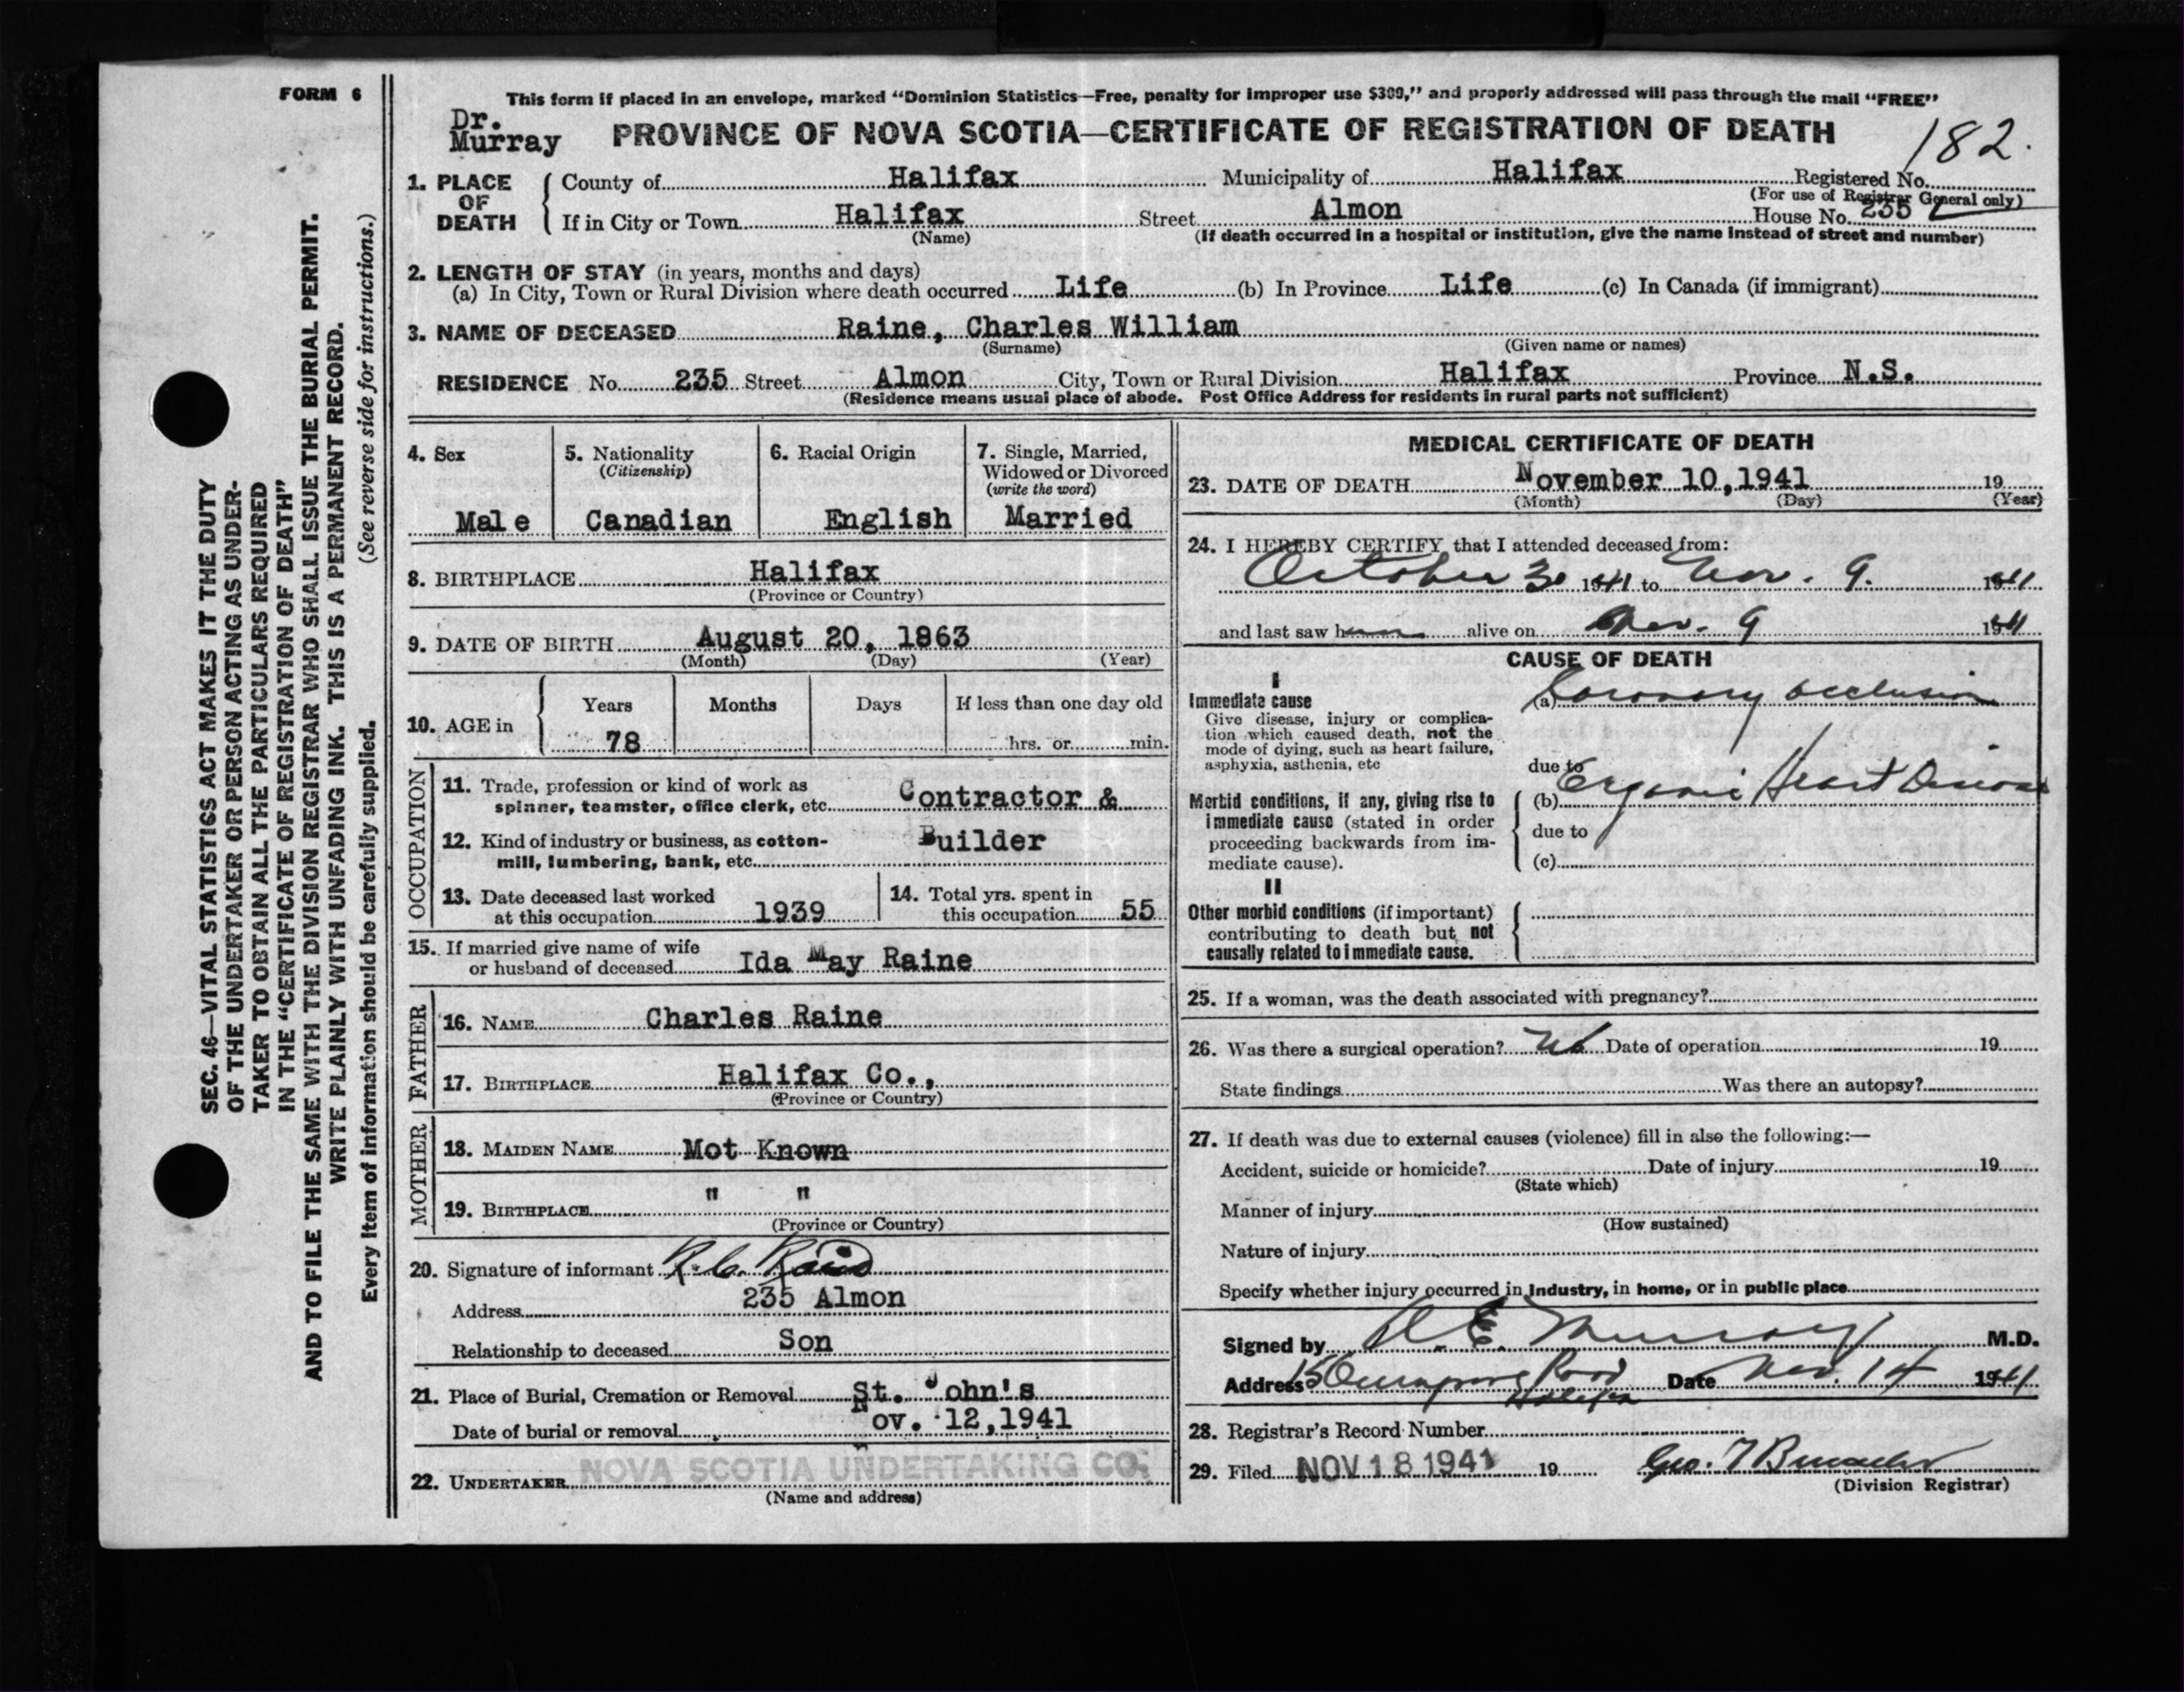 FORM 6
This form if placed in an envelope, marked "Dominion Statistics—Free, penalty for improper use $300," and properly addressed will pass through the mail "FREE"
Dr.
Murray
PROVINCE OF NOVA SCOTIA—CERTIFICATE OF REGISTRATION OF DEATH
182.
1. PLACE OF DEATH
County of Halifax Municipality of Halifax Registered No.
(For use of Registrar General only)
If in City or Town Halifax Street Almon House No. 235
(Name) (If death occurred in a hospital or institution, give the name instead of street and number)
2. LENGTH OF STAY (in years, months and days)
(a) In City, Town or Rural Division where death occurred Life (b) In Province Life (c) In Canada (if immigrant)
3. NAME OF DECEASED Raine, Charles William
(Surname) (Given name or names)
RESIDENCE No. 235 Street Almon City, Town or Rural Division Halifax Province N.S.
(Residence means usual place of abode. Post Office Address for residents in rural parts not sufficient)
4. Sex
Male
5. Nationality
(Citizenship)
Canadian
6. Racial Origin
English
7. Single, Married,
Widowed or Divorced
(write the word)
Married
8. BIRTHPLACE Halifax
(Province or Country)
9. DATE OF BIRTH August 20, 1863
(Month) (Day) (Year)
10. AGE in
Years Months Days If less than one day old
78 hrs. or min.
OCCUPATION
11. Trade, profession or kind of work as
spinner, teamster, office clerk, etc. Contractor &
12. Kind of industry or business, as cotton-
mill, lumbering, bank, etc. Builder
13. Date deceased last worked
at this occupation 1939
14. Total yrs. spent in
this occupation 55
15. If married give name of wife
or husband of deceased Ida May Raine
FATHER
16. NAME Charles Raine
17. BIRTHPLACE Halifax Co.,
(Province or Country)
MOTHER
18. MAIDEN NAME Mot Known
19. BIRTHPLACE " "
(Province or Country)
20. Signature of informant R. C. Raine
Address 235 Almon
Relationship to deceased Son
21. Place of Burial, Cremation or Removal St. John's
Date of burial or removal Nov. 12,1941
22. UNDERTAKER NOVA SCOTIA UNDERTAKING CO.
(Name and address)
MEDICAL CERTIFICATE OF DEATH
23. DATE OF DEATH November 10,1941 19
(Month) (Day) (Year)
24. I HEREBY CERTIFY that I attended deceased from:
October 30 1941 to Nov. 9. 1941
and last saw him alive on Nov. 9 1941
CAUSE OF DEATH
I
Immediate cause
Give disease, injury or complica-
tion which caused death, not the
mode of dying, such as heart failure,
asphyxia, asthenia, etc
(a) Coronary occlusion
due to
Morbid conditions, if any, giving rise to
immediate cause (stated in order
proceeding backwards from im-
mediate cause).
(b) Organic Heart Disease
due to
(c)
II
Other morbid conditions (if important)
contributing to death but not
causally related to immediate cause.
25. If a woman, was the death associated with pregnancy?
26. Was there a surgical operation? No Date of operation 19
State findings Was there an autopsy?
27. If death was due to external causes (violence) fill in also the following:—
Accident, suicide or homicide? Date of injury 19
(State which)
Manner of injury
(How sustained)
Nature of injury
Specify whether injury occurred in Industry, in home, or in public place
Signed by D. E. Murray M.D.
Address Road Halifax Date Nov. 14 1941
28. Registrar's Record Number
29. Filed NOV 18 1941 19 Geo.
(Division Registrar)
SEC. 46—VITAL STATISTICS ACT MAKES IT THE DUTY
OF THE UNDERTAKER OR PERSON ACTING AS UNDER-
TAKER TO OBTAIN ALL THE PARTICULARS REQUIRED
IN THE "CERTIFICATE OF REGISTRATION OF DEATH"
AND TO FILE THE SAME WITH THE DIVISION REGISTRAR WHO SHALL ISSUE THE BURIAL PERMIT.
WRITE PLAINLY WITH UNFADING INK. THIS IS A PERMANENT RECORD.
Every item of information should be carefully supplied. (See reverse side for instructions.)